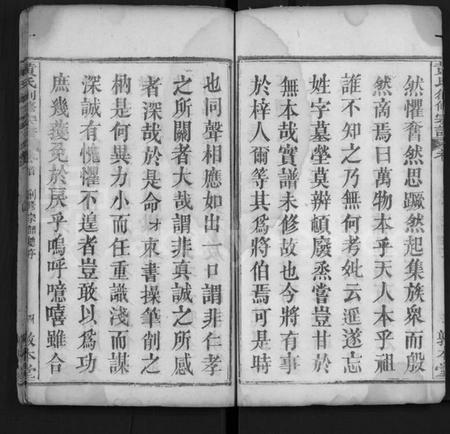 黃氏續修宗譜
然懼奮然思蹶然起集族衆而殷
然商焉曰萬物本乎天人本乎祖
誰不知之乃無何考妣云遥遂忘
姓字墓塋莫辯頓廢烝嘗豈甘於
無本哉實譜未修故也今將有事
於梓人爾等其爲將伯焉可是時
敦本堂
也同聲相應如出一口謂非仁孝
之所關者大哉謂非真誠之所感
者深哉於是命才束書操筆創之
柄是何異力小而任重識淺而謀
深誠有愰懼不遑者豈敢以爲功
庶幾獲免於戾乎嗚呼噫嘻雖合
黃氏創修宗譜
四
敦本堂